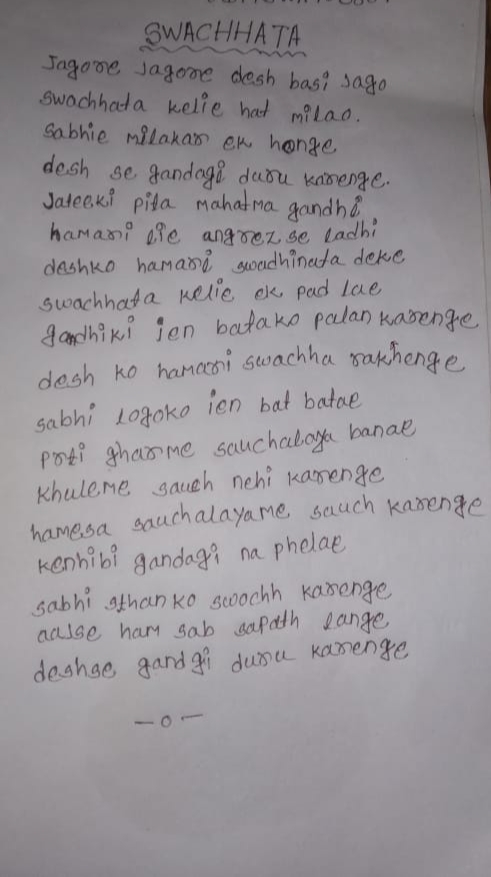 SWACHHATA
Jagore Jagore desh basi Jago
swachhata kelie hat milao.
sabhie milakar ek honge
desh se gandagi duru karenge.
Jateeki pita mahatma gandhi
hamari lie angrez se ladhi
deshko hamari swadhinata deke
swachhata kelie ek pad lae
gandhiki ien batako palan karenge
desh ko hamari swachha rakhenge
sabhi logoko ien bat batae
prti gharme sauchalaya banae
khuleme sauch nehi karenge
hamesa sauchalayame sauch karenge
kenhibi gandagi na phelae
sabhi sthanko swochh karenge
aaise ham sab sapath lange
deshse gandgi duru karenge
—o—